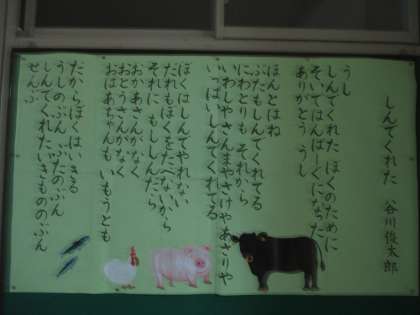 しんでくれた 谷川俊太郎
うし
しんでくれた ぼくのために
そいではんばーぐになった
ありがとう うし
ほんとはね
ぶたもしんでくれてる
にわとりも それから
いわしやさんまやさけやあさりや
いっぱいしんでくれてる
ぼくはしんでやれない
だれもぼくをたべないから
それに もししんだら
おかあさんがなく
おとうさんがなく
おばあちゃんも いもうとも
だからぼくはいきる
うしのぶん ぶたのぶん
しんでくれたいきもののぶん
ぜんぶ